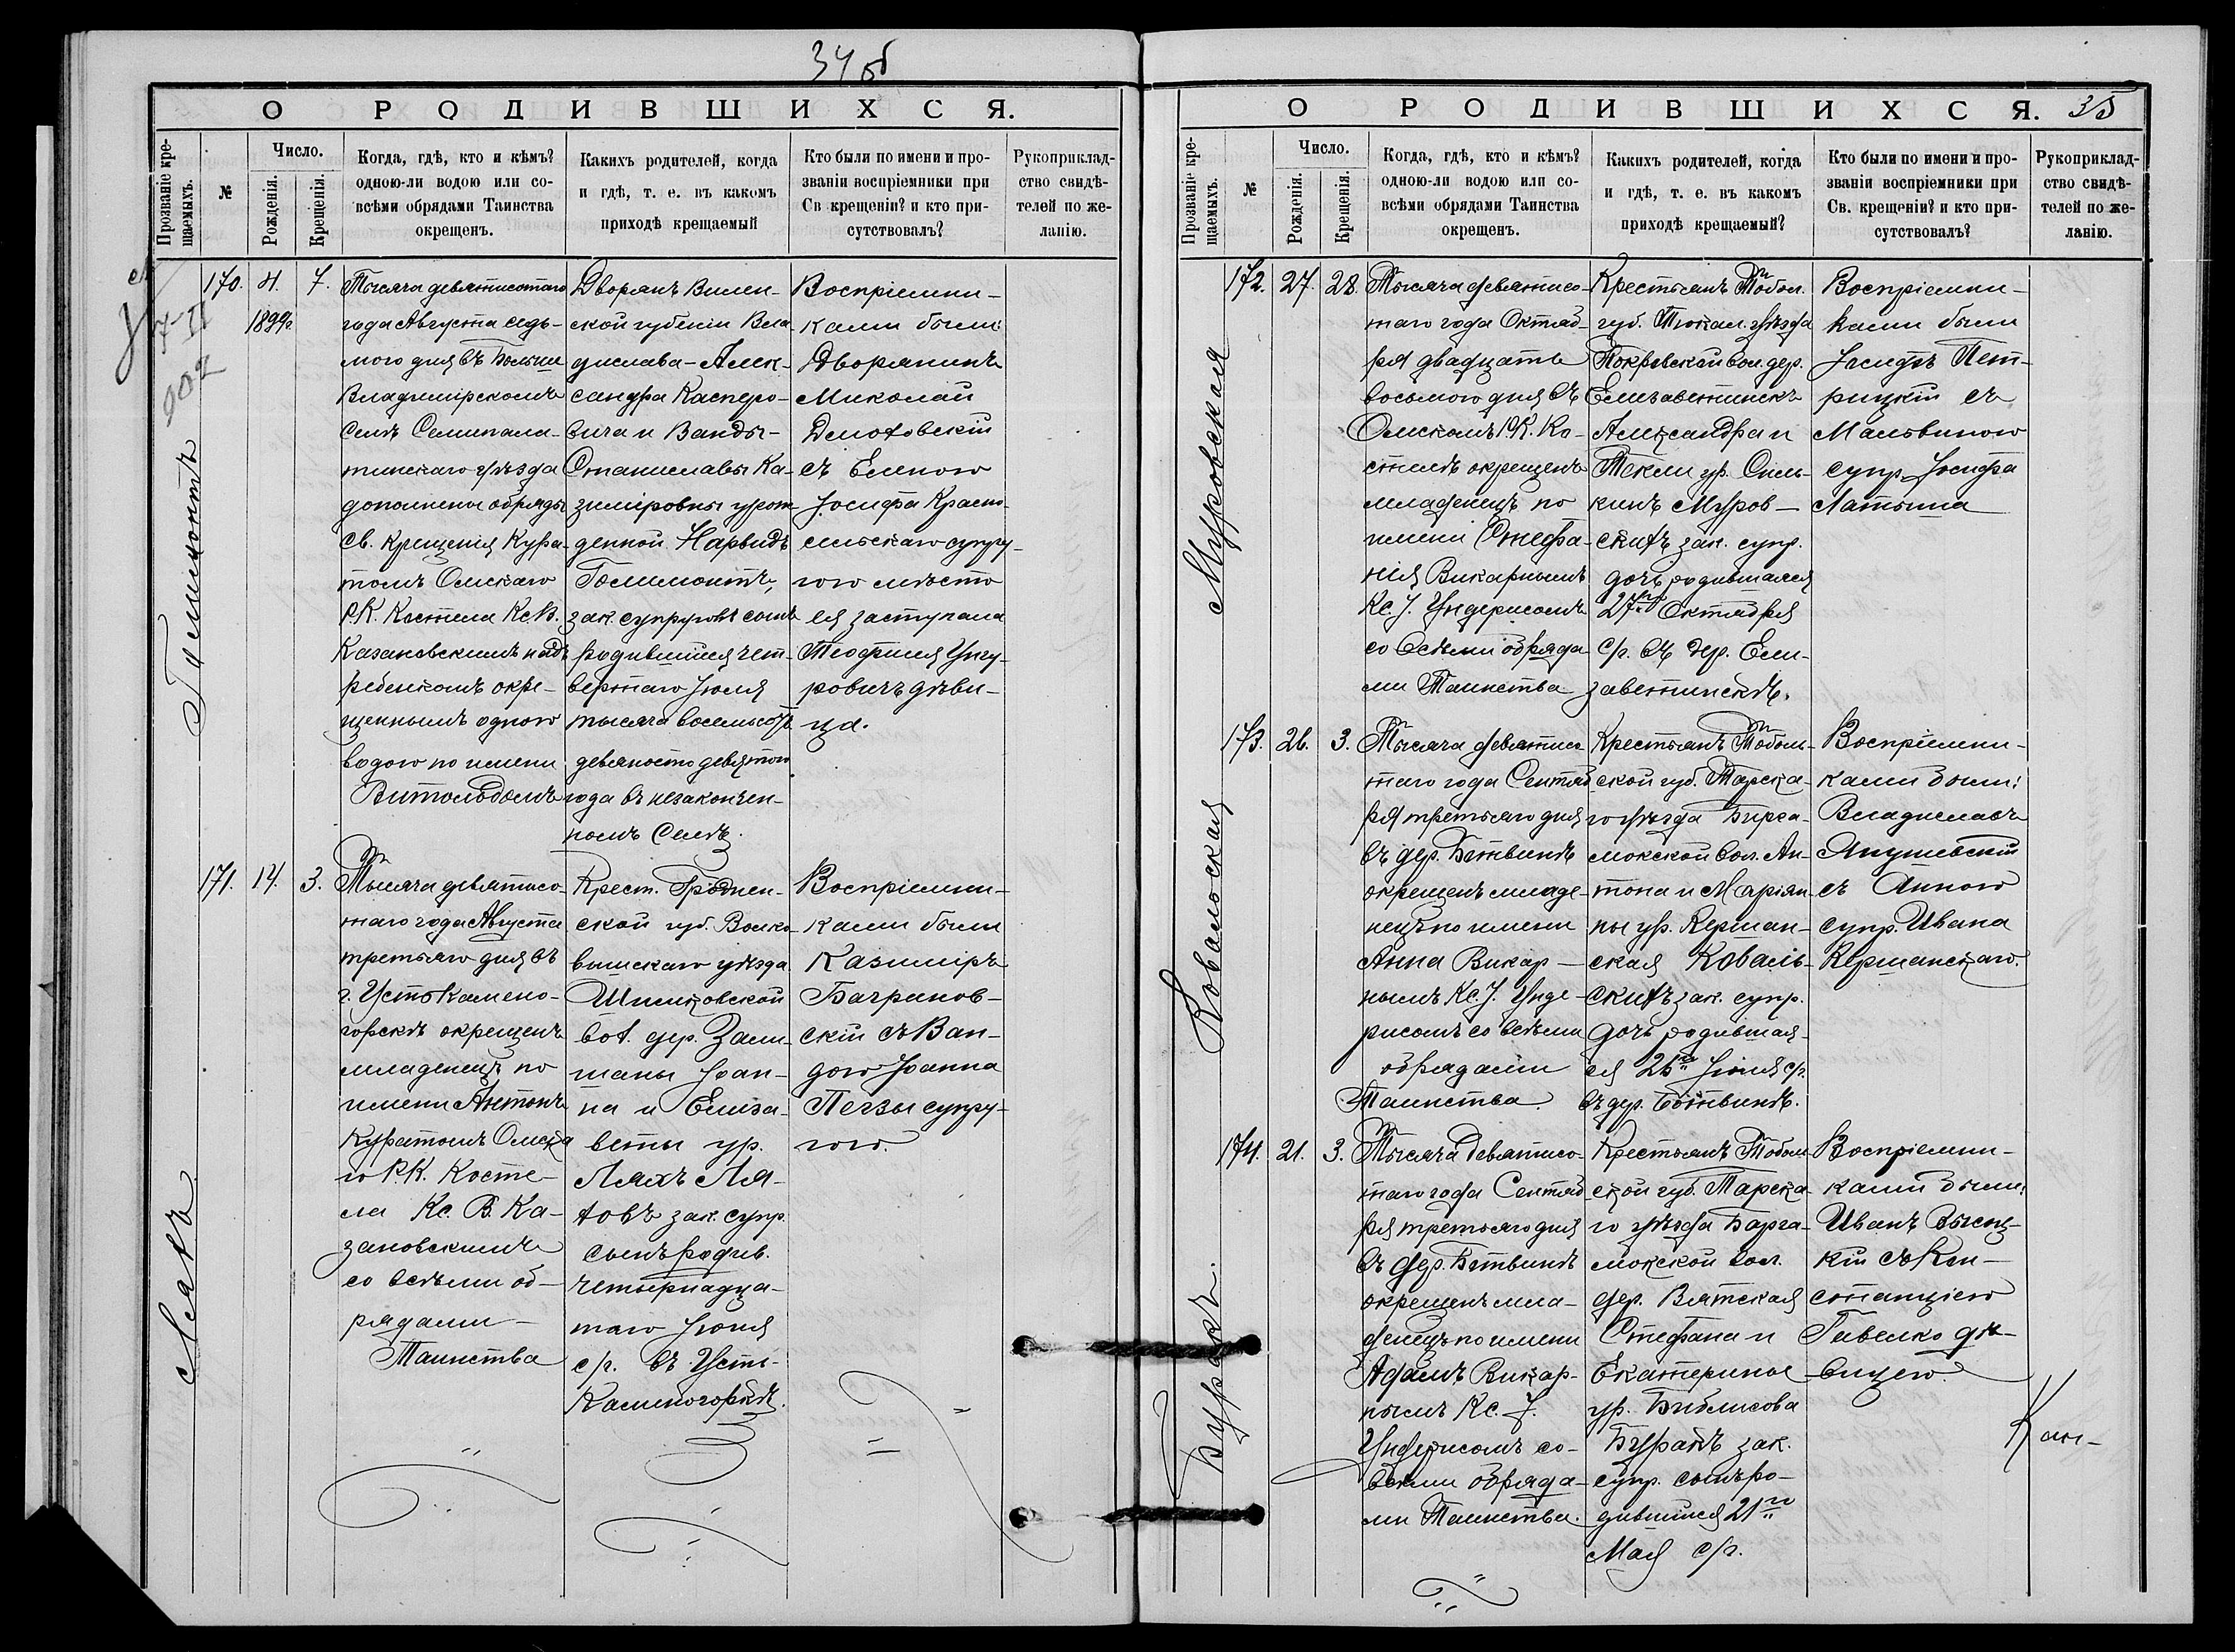 34 об
О РОДИВШИХСЯ.
Прозваніе крещаемыхъ.
№
Число.
Рожденія.
Крещенія.
Когда, гдѣ, кто и кѣмъ?
одною-ли водою или со-
всѣми обрядами Таинства
окрещенъ.
Какихъ родителей, когда
и гдѣ, т. е. въ какомъ
приходѣ крещаемый
Кто были по имени и про-
званіи воспріемники при
Св крещеніи? и кто при-
сутствовалъ?
Рукоприклад-
ство свидѣ-
телей по же-
ланію.
Гасимонтъ
170.
4.
1899г.
7.
Тысяча девятисотаго
года Августа седь-
мого дня въ Больше
Владимірскомъ
Селѣ Семипала-
тинскаго уѣзда
дополнены обряды
Св. Крещенія Кура-
томъ Омскаго
Р.К. Костела Кс. В.
Казановскимъ надъ
ребенкомъ окре-
щеннымъ одною
водою по имени
Витольдомъ
Дворянъ Вилен-
ской губерніи Вла-
дислава-Алек-
сандра Касперо-
вича и Ванды-
Станиславы Ка-
зиміровны урож-
денной Нарвидъ
Гасимонтъ,
зак. супруговъ сынъ
родившійся чет-
вертаго Іюля
тысяча восемьсотъ
девяносто девятого
года въ незакончен-
номъ Селѣ.
Воспріемни-
ками были:
Дворянинъ
Миколай
Демотовскій
съ Еленою
Іосифа Красно-
сельскаго супру-
гою мѣсто
ея заступала
Теофилія Унгу-
ровичъ дѣви-
ца.
Ляхъ
171.
14.
3.
Тысяча девятисо-
таго года Августа
третьяго дня въ
г. Устькамено-
горскѣ окрещенъ
младенецъ по
имени Антонъ
Куратомъ Омска
го Р.К. Косте-
ла Кс. В. Ка-
зановскимъ
со всѣми об-
рядами
Таинства
Крест. Гроднен-
ской губ. Волко-
вышскаго уѣзда
Шимковской
вол. дер. Зали-
маны Іоан-
на и Елиза-
веты ур.
Ляхъ Ля-
ховъ зак. супр.
сынъ родив.
четырнадца-
таго Іюня
с/г. въ Усть-
Каменогорскѣ.
Воспріемни-
ками были
Казиміръ
Багринов-
скій съ Ван-
дою Іоанна
Пегзы супру-
гою.
О РОДИВШИХСЯ.
35
Прозваніе крещаемыхъ.
№
Число.
Рожденія.
Крещенія.
Когда, гдѣ, кто и кѣмъ?
одною-ли водою или со-
всѣми обрядами Таинства
окрещенъ.
Какихъ родителей, когда
и гдѣ, т. е. въ какомъ
приходѣ крещаемый?
Кто были по имени и про-
званіи воспріемники при
Св. крещеніи? и кто при-
сутствовалъ?
Рукоприклад-
ство свидѣ-
телей по же-
ланію.
Муровская
172.
27.
28.
Тысяча девятисо-
таго года Октяб-
ря двадцать
восьмого дня въ
Омскомъ Р.К. Ко-
стелѣ окрещенъ
младенецъ по
имени Стефа-
нія Викарнымъ
Кс. І. Ундерисомъ
со всѣми обряда
ми Таинства
Крестьянъ Тобол.
губ. Тюкал. уѣзда
Покровской вол. дер.
Елизаветинскъ
Александра и
Текли ур. Силь-
кинъ Муров-
скихъ зак. супр.
дочь родившаяся
27го Октября
с/г. въ дер. Ели-
заветинскѣ.
Воспріемни-
ками были
Іосифъ Пет-
рицкій съ
Мальвиною
супр. Іосифа
Латыша
Ковальская
173.
26.
3.
Тысяча девятисо
таго года Сентяб
ря третьяго дня
въ дер. Ботвинѣ
окрещенъ младе-
нецъ по имени
Анна Викар-
нымъ Кс. І. Унде-
рисомъ со всѣми
обрядами
Таинства.
Крестьянъ Тоболь-
ской губ. Тарска-
го уѣзда Бирга-
мокской вол. Ан-
тона и Маріян-
ны ур. Керман-
ская Коваль-
скихъ зак. супр.
дочь родившая-
ся 26го Іюля с/г.
въ дер. Ботвинѣ.
Воспріемни-
ками были:
Владиславъ
Янушевскій
съ Анною
супр. Ивана
Керманскаго.
Буракъ.
174.
21.
3.
Тысяча девятисо-
таго года Сентяб
ря третьяго дня
въ дер. Ботвинѣ
окрещенъ мла-
денецъ по имени
Адамъ Викар-
нымъ Кс. І.
Ундерисомъ со-
всѣми обряда-
ми Таинства.
Крестьянъ Тоболь
ской губ. Тарска-
го уѣзда Бирга-
мокской вол.
дер. Вятская
Стефана и
Екатерины
ур. Библисова
Буракъ зак.
супр. сынъ ро-
дившійся 21го
Мая с/г.
Воспріемни-
ками были:
Иванъ Высоц-
кій съ Кон-
станціею
Гавелко дѣ-
вицею.